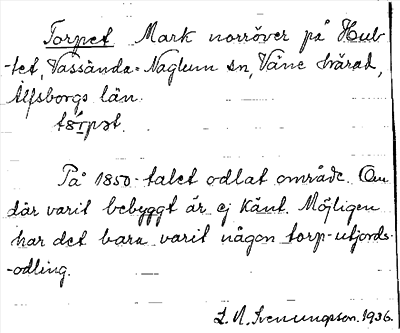 Torpet Mark norröver på Hub-
-tet, Vassända-Naglum sn, Väne härad,
Älfsborgs län.
På 1850-talet odlat område. Om
där varit bebyggt är ej känt. Möjligen
har det bara varit någon torp-utjords-
-odling.
1936.